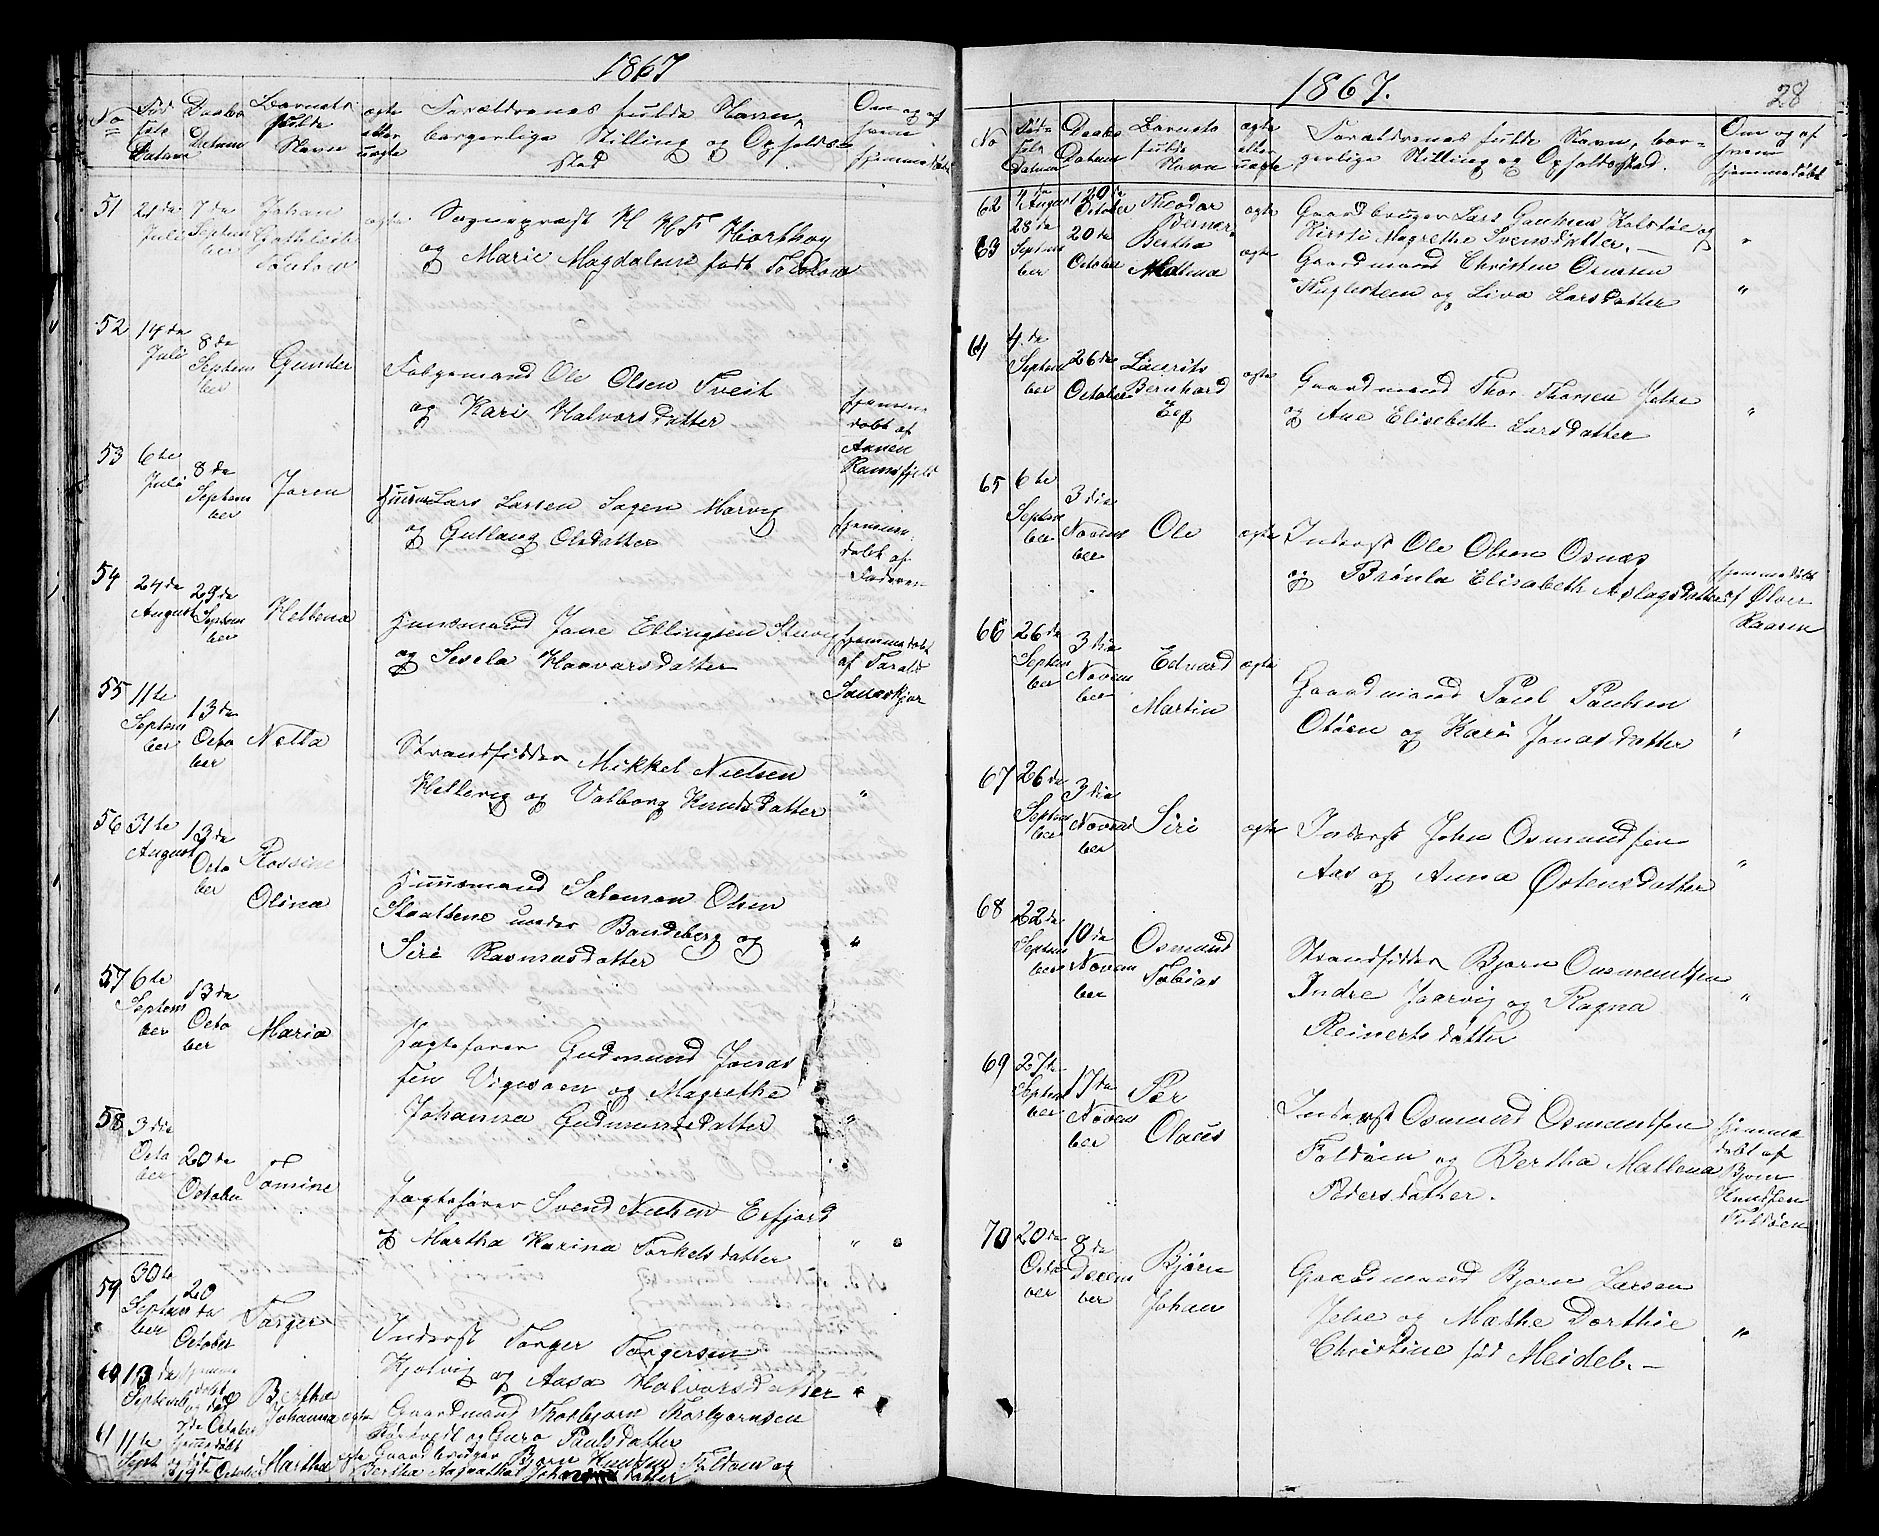 1867
No
Fød
sels
Datum
Daabs
Datum
Barnets
fulde
Navn
ægte
eller
uægte
Forældrenes fulde Navn,
borgerlige Stilling og Opholds-
sted
Om og af
hvem
hjemmedøbt
51
21de
Juli
7de
Septem
ber
Johan
Gothlieb
ægte
Sogneprest H H F Hiorthøy
og Marie Magdalene født
52
14de
Juli
8de
Septem
ber
Gunder
Ole Olsen Tveit
og Kari Halvorsdatter
hjemme
døbt af
Ramsfjeld
53
6te
Juli
8de
Septem
ber
Joren
Lars Larsen Sagen Marvig
og Gullaug Olsdatter
hjemme
døbt af
Faderen
54
24de
August
29de
Septem
ber
Hellena
Huusmand Jone Ellingsen
og Sesela Haavarsdatter
hjemmedøbt
af Tarald
55
11te
Septem
ber
13de
Octo
ber
Netta
Strandsidder Mikkel Nielsen
Hellevig og Valborg Knudsdatter
"
56
31te
August
13de
Octo
ber
Rossine
Olina
Huusmand Salomon Olsen
under Bandeberg og
Siri Rasmusdatter
"
57
6te
Septem
ber
13de
Octo
ber
Maria
Jagtefører Gudmund Jonas
sen og Magrethe
Johanna Gudmundsdatter
"
58
3die
Octo
ber
20de
October
Tomine
Jagtefører Svend Nielsen Erfjord
og Martha Karina Torkelsdatter
"
59
30te
Septem
ber
20
de
October
Torger
Inderst Torger Torgersen
Kjølvig og Aasa Halvorsdatter
60
13de
Septemb
hjemme
døbt
og død
7de October
Bertha
Johanna
ægte
Gaardmand Thorbjørn Thorbjørnsen
og Guro Paulsdatter
61
11te
Sept
hjemmedøbt
October
Martha
ægte
Gaardbruger Bjørn Knudsen Foldøen og
Bertha

1867.
28
No
Føds
sels
Datum
Daabs
Datum
Barnets
fulde
Navn
ægte
eller
uægte
Forældrenes fulde Navn, bor-
gerlige Stilling og Opholdssted.
Om og af
hvem
hjemmedøbt
62
August
20de
October
Theodor
ægte
Gaardbruger Lars og
Kirsti Magrethe Svensdatter.
"
63
28de
Septem
ber
20de
October
Bertha
Mallena
ægte
Gaardmand Christen
og Liva Larsdatter
"
64
4de
Septem
ber
26de
October
Laurits
Bernhard
ægte
Gaardmand Thor Thorsen Jelse
og Ane Elisebeth Larsdatter
"
65
6te
Septem
ber
3die
Novem
ber
Ole
ægte
Inderst Ole Olsen Osnæs
og Brønla Elisabeth Aslagsdatter
hjemmedøbt
af Øliver
66
26de
Septem
ber
3die
Novem
ber
Edvard
Martin
ægte
Gaardmand Paul Paulsen
Otøen og Kari Jonasdatter
"
67
26de
Septem
ber
3die
Novem
ber
Siri
ægte
Inderst John Osmundsen
Aas og Anna Østensdatter
"
68
22de
Septem
ber
10de
Novem
ber
Osmund
Tobias
Strandsidder Bjørn Osmundsen
Indre Jaarvig og Ragna
Reinertsdatter
"
69
27de
Septem
ber
17de
Novem
ber
Per
Olaus
Inderst Osmund Osmundsen
Foldøen og Bertha Mallena
Pedersdatter.
hjemme
døbt af
Bjørn
Knudsen
Foldøen
70
20de
Octo
ber
8de
Decem
ber
Bjørn
Johan
Gaardmand Bjørn Larsen
Jelse og Mathe Dorthie
Christine fød Meidel.
"